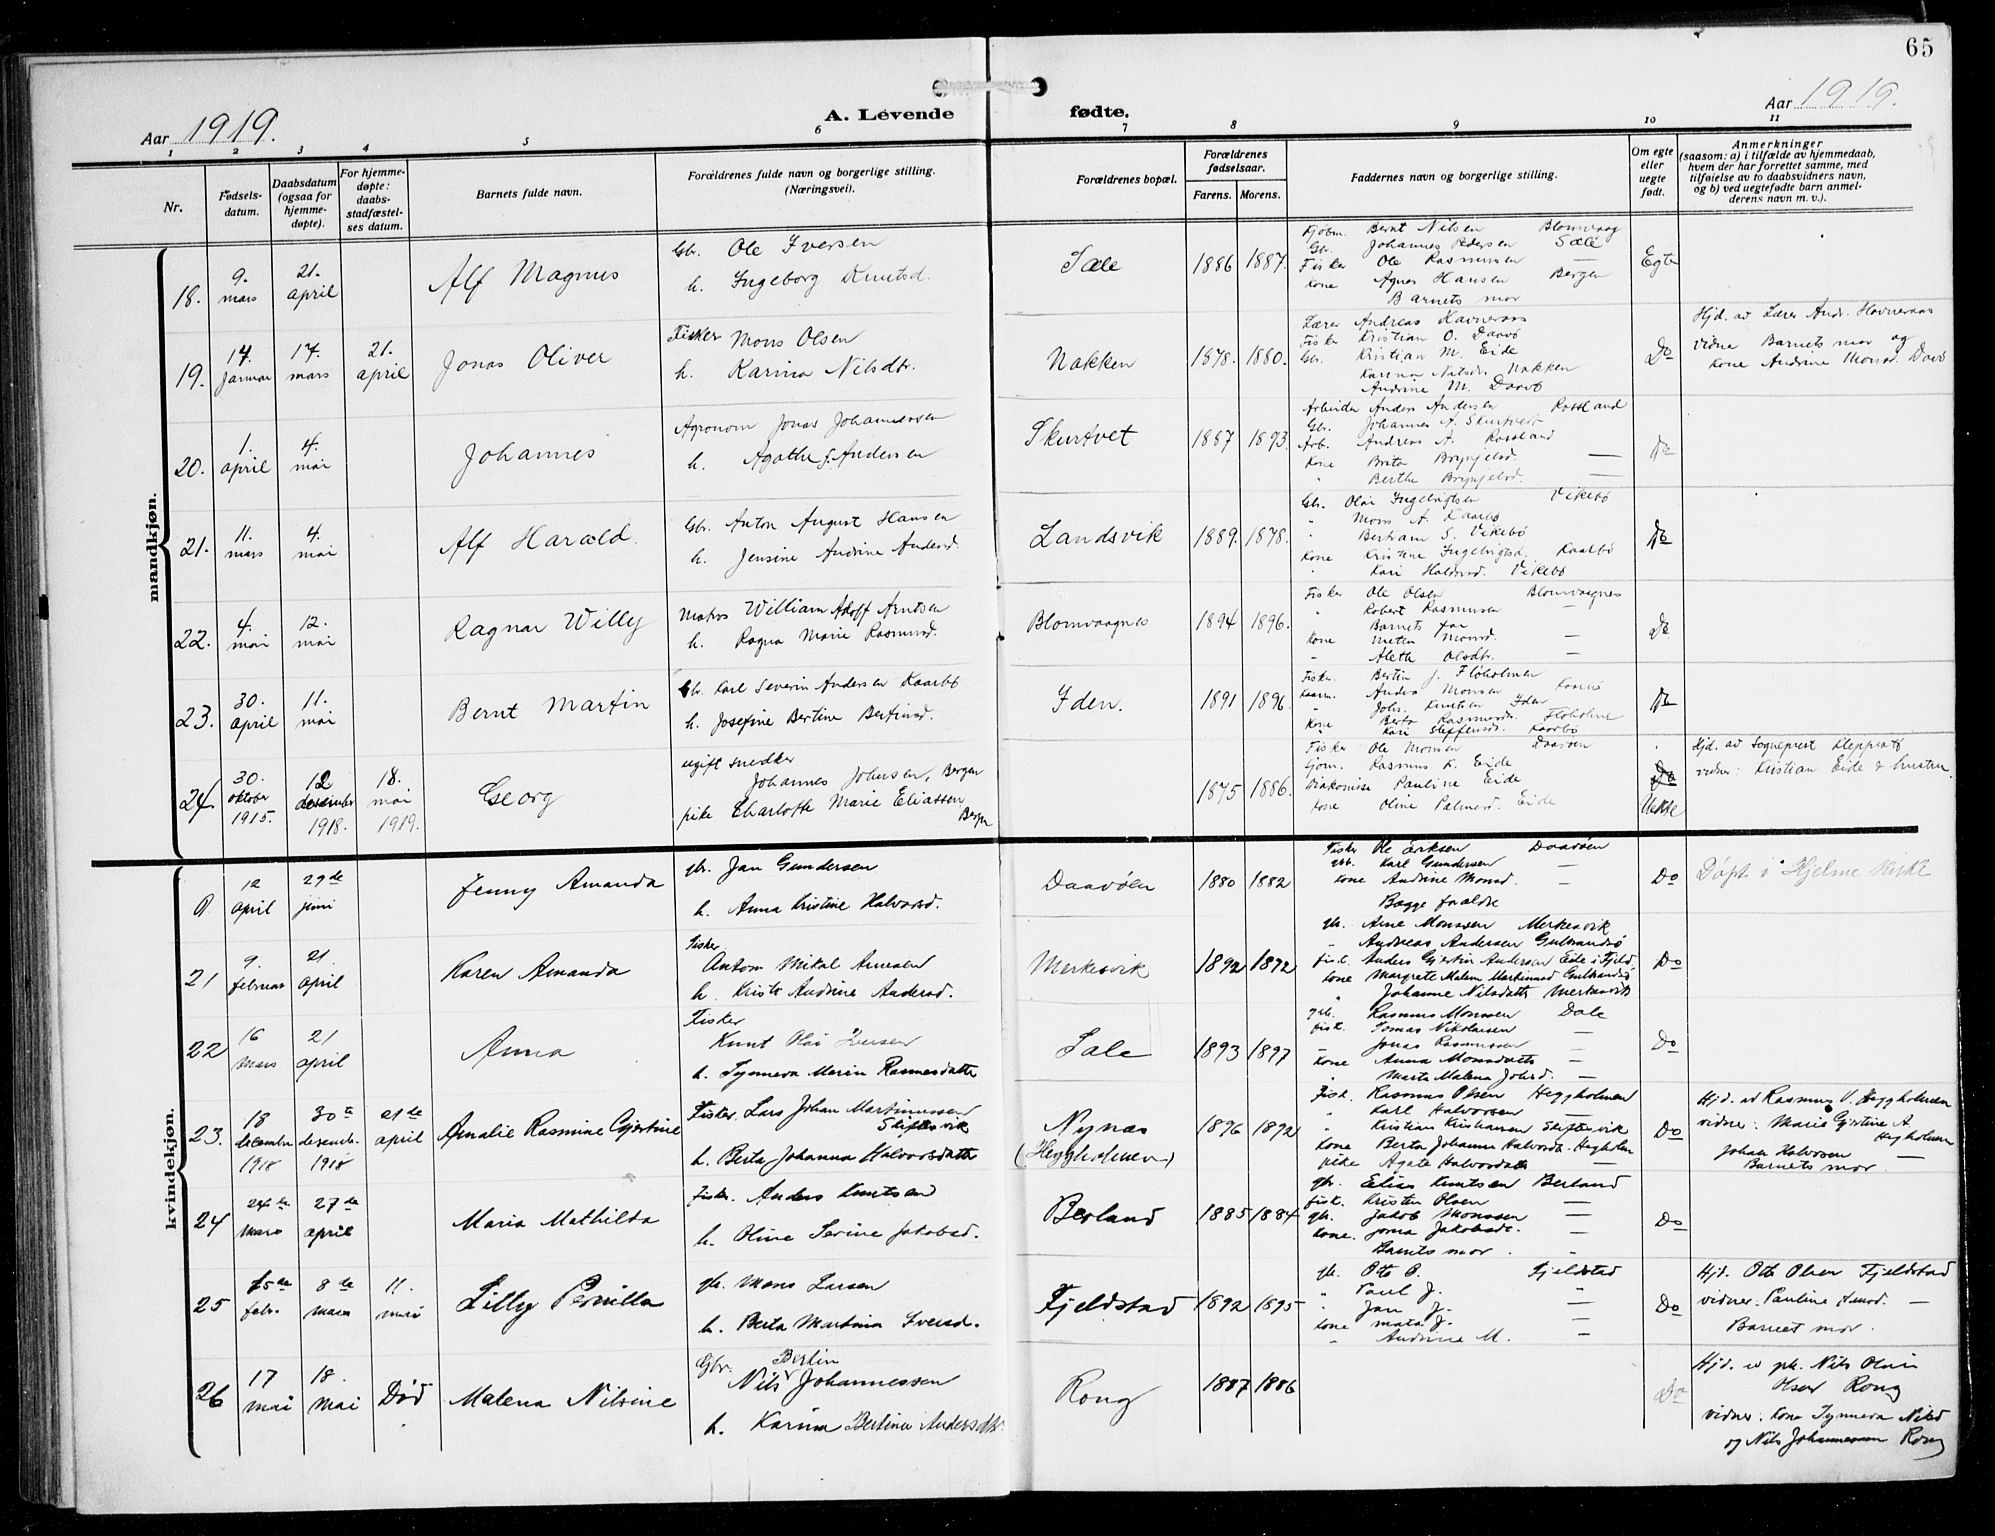 65
Aar 1919.
A. Levende fødte.
Aar 1919.
1 2 3 4 5 6 7 8 9 10 11
Nr.
Fødsels-
datum.
Daabsdatum
(ogsaa for
hjemme-
døpte).
For hjemme-
døpte:
daabs-
stadfæstel-
ses datum.
Barnets fulde navn.
Forældrenes fulde navn og borgerlige stilling.
(Næringsvei).
Forældrenes bopæl.
Forældrenes
fødselsaar.
Farens. Morens.
Faddernes navn og borgerlige stilling.
Om egte
eller
uegte
født.
Anmerkninger
(saasom: a) i tilfælde av hjemmedaab,
hvem der har forrettet samme, med
tilføielse av to daabsvidners navn,
og b) ved uegtefødte barn anmel-
derens navn m. v.).
mandkjøn.
18.
9.
mars
21.
april
Alf Magnus
Gbr. Ole Iversen
h. Ingeborg Knutsd.
Sæle
1886 1887.
Kjøbm. Bernt Nilsen Blomvaag
Gbr. Johannes Pedersen Sæle
Fisker Ole Rasmussen —
Kone Agnes Hansen Bergen
Barnets mor
Egte
19.
17.
januar
17.
mars
21.
april
Jonas Oliver
Fisker Mons Olsen
h. Karina Nilsdtr.
Nakken
1878. 1880.
Lærer Andreas Havneraas
Fisker Kristian O. Daavø
Gbr. Kristian M. Eide
Karina Nilsdr. Nakken
Andrine M. Daavø
Do
Hjd. av Lærer Andr. Havneraas
vidne Barnets mor og
Kone Andrine Monsd. Daavø
20.
1.
april
4.
mai
Johannes
Agronom Jonas Johannessen
h. Agathe J. Andersen
Skurtvet
1887 1893.
Arbeider Anders Andersen Rossland
Gbr. Johannes A. Skurtvedt
Arb. Andreas A. Rossland
Kone Brita Brynjelsd. —
" Berthe Brynjelsd. —
Do
21.
11.
mars
4.
mai
Alf Harald.
Gbr. Anton August Hansen
h. Jensine Andrine Andersd.
Landsvik
1889. 1878.
Gbr. Olai Ingebrigtsen Vikebø
" Mons A. Kaarbø
" Bertram S. Vikebø
Kone Kristine Ingebrigtsd. Kaarbø
" Kari Haldorsd. Vikebø
Do
22.
4.
mai
12.
mai
Ragnar Willy
Matros William Adolf Arntsen
h. Ragna Marie Rasmusd.
Blomvaagnes
1894 1896.
Fisker Ole Olsen Blomvaagnes
" Robert Rasmusen —
Barnets far
Kone Meten Monsd. —
" Aleth Olsdtr. —
Do
23.
30.
april
11.
mai
Bernt Martin
Gbr. Karl Severin Andersen Kaarbø
h. Josefine Bertine Bertinsd.
Iden.
1891 1896.
Fisker Bertin J. Floholmen
Anders Monsen Kaarbø
" Johs. Knutsen Iden
Kone Berta Rasmusd. Floholme
" Kari Steffensd. Kaarbø
Do
24.
30.
oktober
1915.
12
desember
1918.
18.
mai
1919.
Georg
ugift snedker
Johannes Johnsen, Bergen
pike Charlotte Marie Eliassen
Bergen
1875 1886.
Fisker Ole Monsen Daavøen
Gjom. Rasmus K. Eide
Diakonisse Pauline Eide
Kone Oline Palmesd. Eide
Do
Uekte
Hjd. av Sogneprest Kleppestø
vidner: Kristian Eide & hustru
kvindekjøn.
9
12
april
29de
juni
Jenny Amanda
gbr. Jan Gundersen
h. Anna Kristine Halvorsd.
Daavøen
1880 1882
Fisker Ole Eriksen Daavøen
gbr. Karl Gundersen —
Kone Andrine Monsd. —
Begge forældre
Do
Døpt i Hjelme Kirke
21
9.
februar
21.
april
Karen Amanda
Fisker
Anton Mikal Arnesen
h. Kristi Andrine Andersd.
Merkesvik
1892 1892
gbr. Arne Monssen Merkesvik
" Andreas Andersen Gulbrandsø
fisk. Anders Gjertin Andersen Eide i Fjeld
kone Margrete Malene Martinusd Gulbrandsø
" Johanne Nilsdatter Merkesvik
Do
22
16
Mars
21
april
Anna
Fisker
Knut Olai Iversen
h. Synneva Marie Rasmusdatter
Sæle
1893 1897
gbr. Rasmus Monssen Dale
fisk. Tomas Nikolaisen —
" Jonas Rasmussen —
Kone Anna Monsdatter —
" Marta Malena Johsd. —
Do
23.
18
december
1918
30te
desembr.
1918
21de
april
Amalie Rasmine Gjertine
Fisker. Lars Johan Martinussen
Skiftesvik
h. Berta Johanna Halvorsdatter
Nynæs
(Heggholmen)
1896 1892
Fisk. Rasmus Olsen Heggholmen
" Karl Halvorsen —
" Kristian Kristiansen Skiftesvik
Kone Berta Johanne Halvorsdr. Heggholmen
pike Agate Halvorsdatter —
Do
Hjd. ad Rasmus O. Heggholmen
vidner: Marie Gjertine A
Heggholmen
Johan Halvorsen —
Barnets mor.
24
24de
Mars
27de
april
Maria Mathilda
Fisker. Anders Knutsen
h. Oline Serine Jakobsd.
Berland
1885 1884
gbr. Elias Knutsen Berland
fisk. Kristen Olsen —
gbr. Jakob Monssen —
Kone. Jona Jakobsdr. —
Barnets mor. "
Do
25
15de
febr.
8de
mars
11.
mai
Lilly Pernilla
gbr. Mons Larsen
h. Berta Martina Iversd.
Fjeldstad
1892 1895
gbr. Otto O. Fjeldstad
" Paul J. "
" Jan J. —
kone mata J. —
" Andrine M. —
Do
Hjd. Otto Olsen Fjeldstad
vidner: Pauline Amod. —
Barnet mor.
26
17
mai
18.
Mai
Død
Malena Nilsine
Gbr. Bertin
Nils Johannessen
h. Karina Bertina Andersdtr.
Rong
1887 1886
Do
Hjd. av gbr. Nils Olai
Olsen Rong
vidner: Kone Synneva Nilsd
og Nils Johannessen Rong